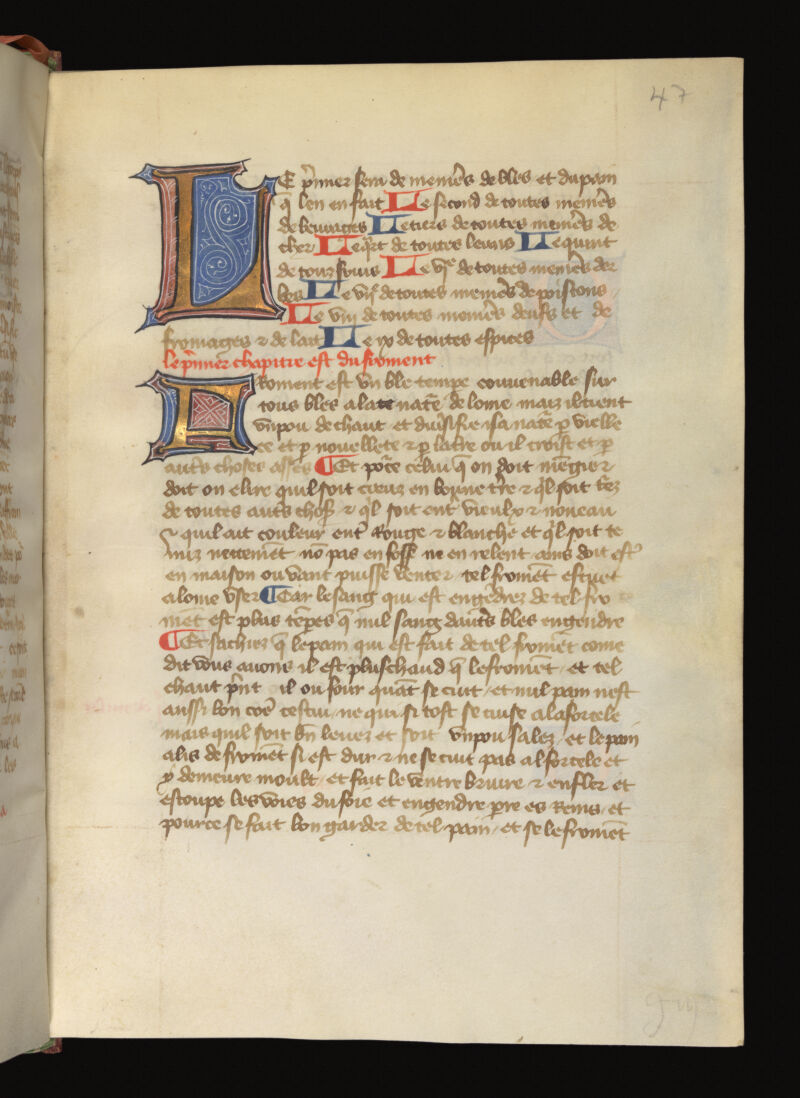 47
LE p̄mier sera de menieres de bles et du pain
q̄ len en fait Le second de toutes menieres
de beuurages Le tiers de toutes menieres de
cher Le q̄rt de toutes leuns Le quint
de touz fruis Le vjᵉ de toutes menieres der
bes Le vijᵉ de toutes menieres de poissons
Le viij de toutes menieres deufs et de
fromages ⁊ de lait Le ix de toutes espices
le p̄mier chapitre est du froment
FRoment est vn ble tempe conuenable sur
tous bles a la nat̄e de lome maiz il tient
vn pou de chaut et diuersifie isa nat̄e p̄ vielle
ce et p̄ nouellete ⁊ p̄ la t̄re ou il croist et p̄
aut̄s choses asses ¶Et po᷑ce celui q̄ on doit mēgier
doit on elire quil soit creuz en bonne t̄re ⁊ q̄l soit
de toutes aut̄s choses ⁊ q̄l soit ent̄ vieulx ⁊ nouueau
⁊ quil ait couleur ent̄ rouge ⁊ blanche et q̄l soit te
nuz nettemēt nō pas en fosse ne en relent ains doit est̄
en maison ou vant puisse venter tel fromēt est
a lome vser ¶Car le sang qui est engēdrez de tel fro
mēt est plus tēpes q̄ nul sang daut̄s bles engendre
¶Et sachiez q̄ le pain qui est fait de tel fromēt come
dit vous auons il est plus chaud q̄ le fromēt et tel
chaut p̄nt il ou four quāt se cuit et nul pain nest
aussi bon cōe cestui ne qui si tost se cuise a la forcele
mais quil soit bn̄ leuez et soit vn pou salez et le pain
alis de fromēt si est dur ⁊ ne se cuit pas al forcele et
y demeure moult et fait le ventre bruire ⁊ enfler et
estoupe les voies du foie et engendre pierre es reins et
pource se fait bon garder de tel pain et se le fromēt